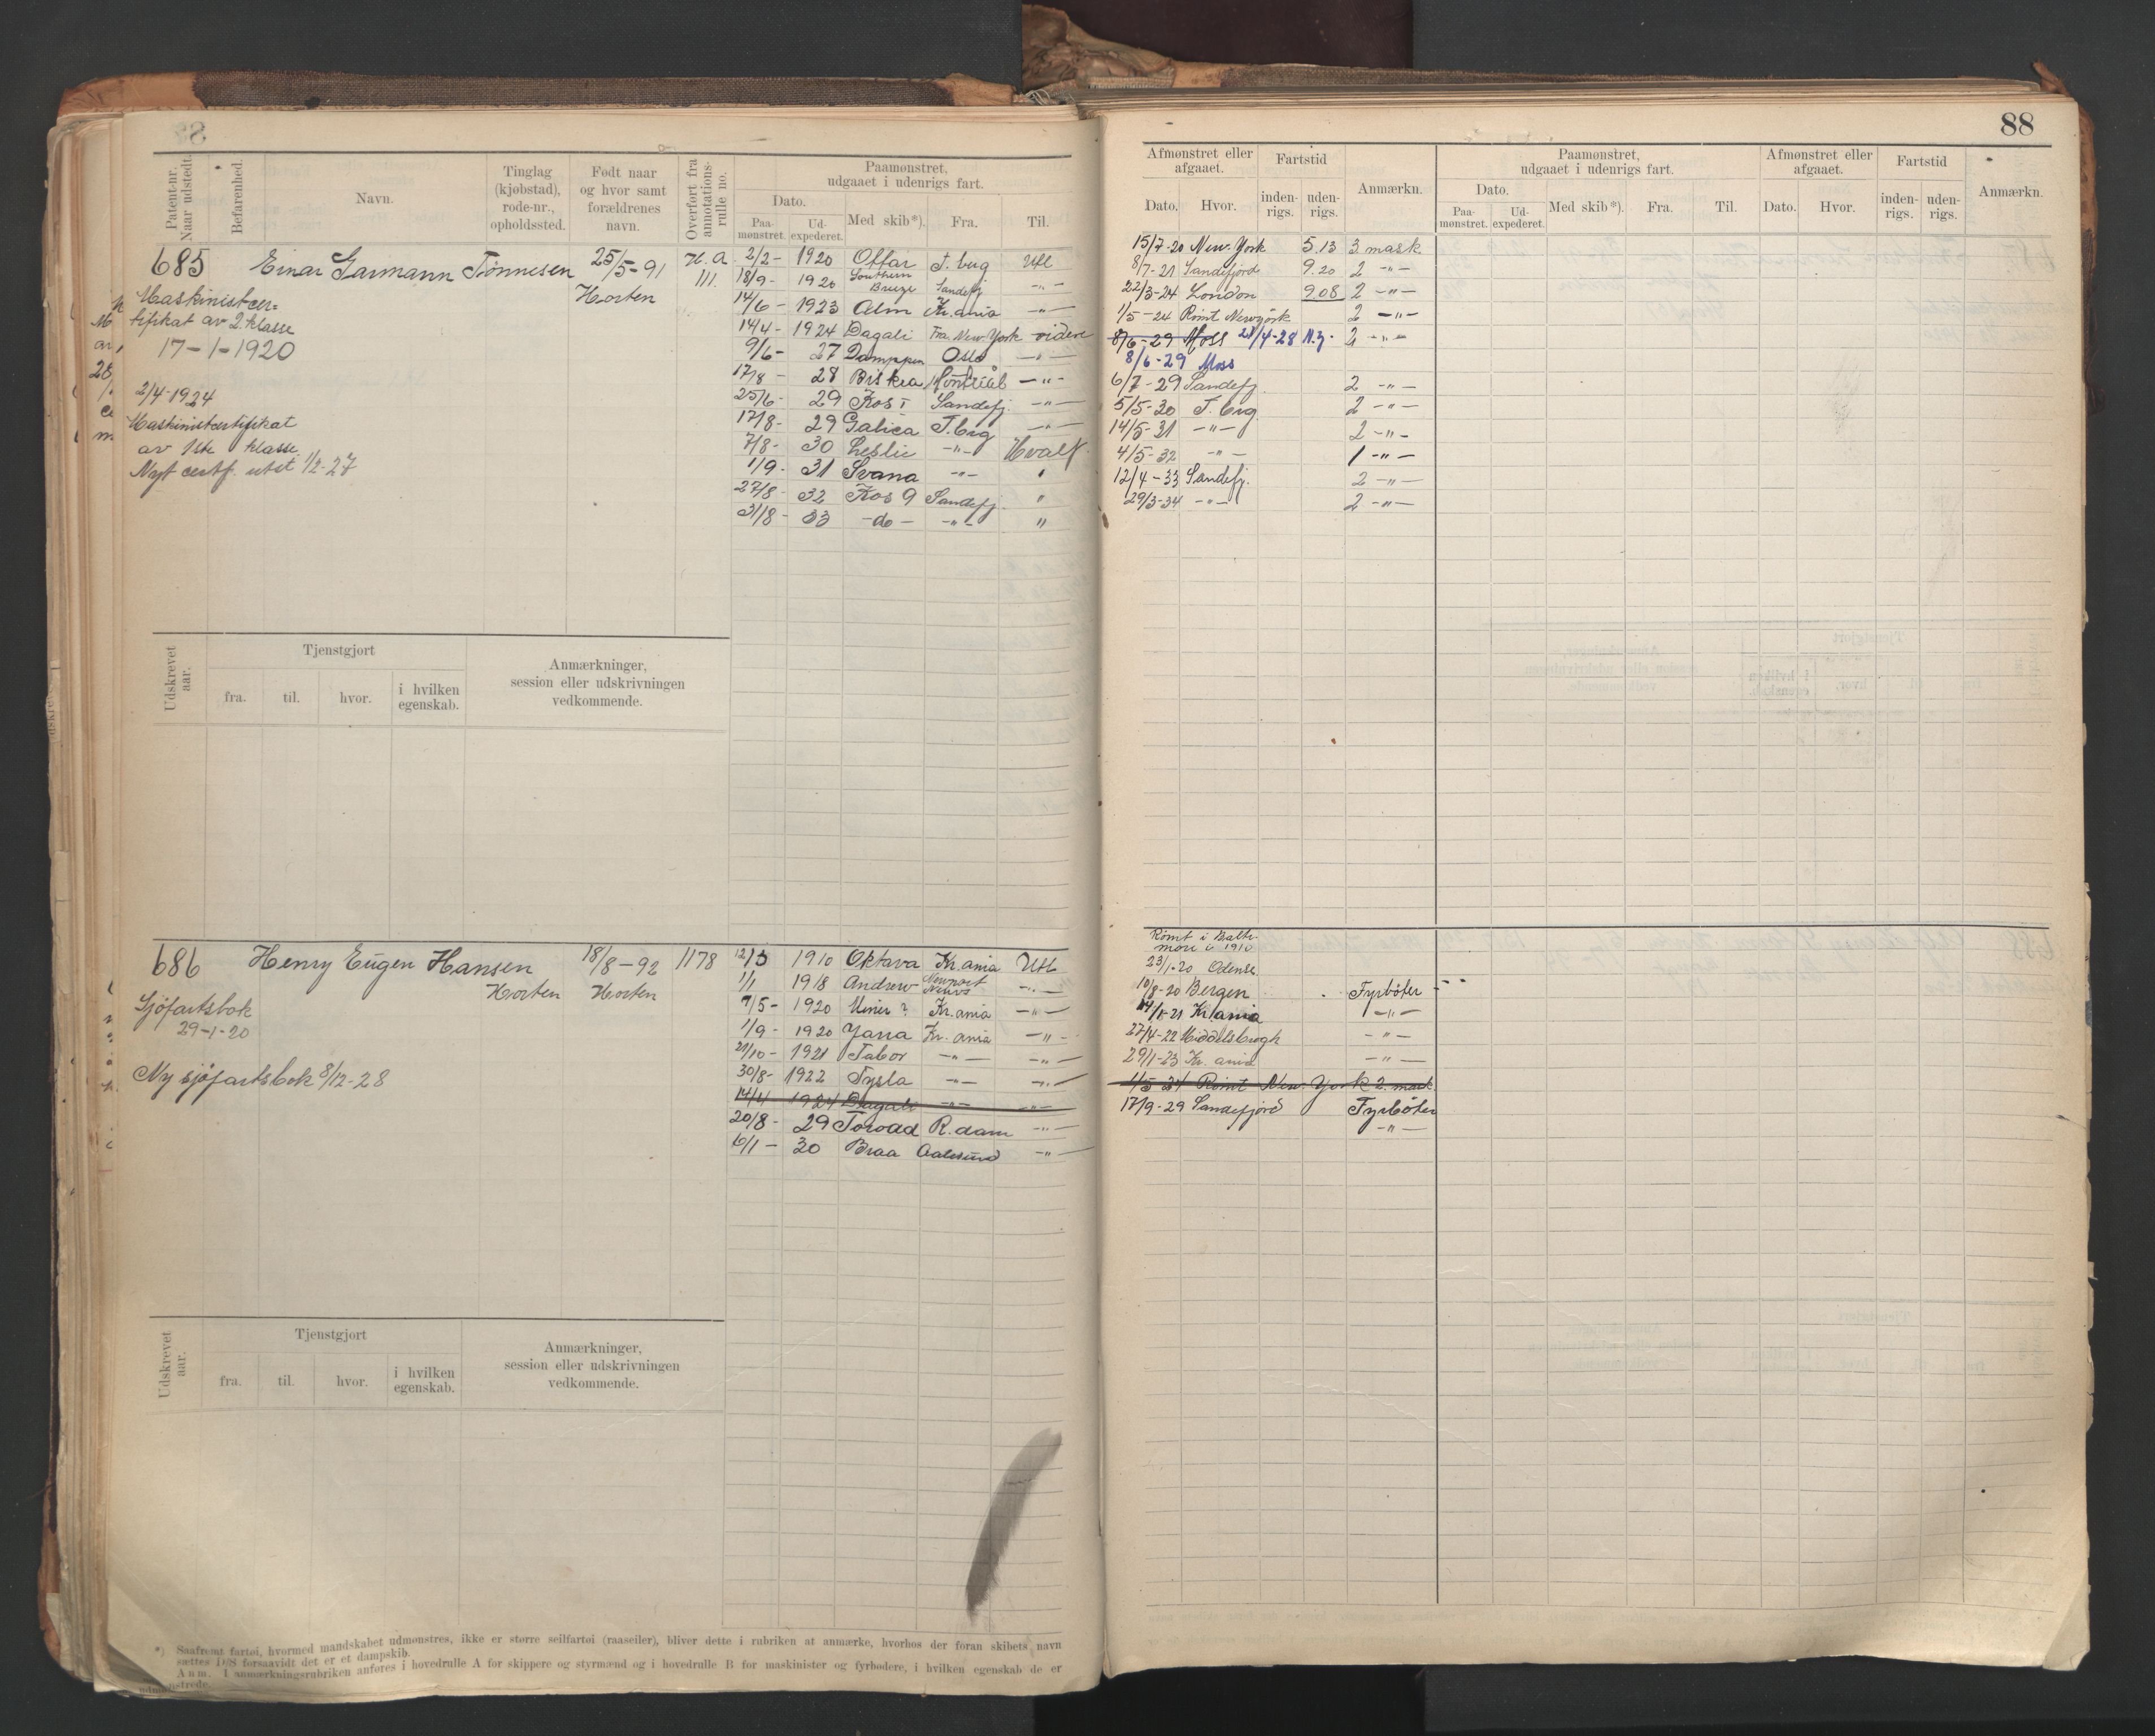 88
Patent-nr. Naar udstedt.
Befarenhed.
Navn.
Tinglag (kjøbstad), rode-nr., opholdssted.
Født naar og hvor samt forældrenes navn.
Overført fra annotations-rulle no.
Paamønstret, udgaaet i udenrigs fart.
Dato.
Paa-mønstret. Ud-expederet. Med skib*). Fra. Til.
685 Einar Garmann Tönnesen 25/5-91 H.A III.
Horten
Maskinistcer=
tifikat av 2. klasse
17-1-1920
2/4-1924
Maskinistcertifikat
av 1ste klasse.
Nyt certf. utst 1/2-27
2/2- 1920 Offar T.berg Utl
18/9- 1920 Southern Breeze Sandefj -"-
14/6- 1923 Alm Kr.ania -"-
14/4- 1924 Dagali Fra New.York videre
9/6- 27 Oslo -"-
17/8- 28 Biskra Montreal -"-
25/6- 29 Kos I Sandefj. -"-
17/8- 29 Galica T.brg -"-
7/8- 30 Leslie -"- Hvalf.
1/9- 31 Svana -"- "
27/8- 32 Kos 9 Sandefj. "
31/8- 33 -do- -"- "
Udskrevet aar.
Tjenstgjort
fra. til. hvor. i hvilken egenskab.
Anmærkninger, session eller udskrivningen vedkommende.
686 Henry Eugen Hansen 18/8-92 1178
Horten Horten
Sjöfartsbok
29-1-20
Ny sjöfartsbok 8/12-28
12/3 1910 Oktava Kr.ania Utl
1/1 1918 Andrew Newport News -"-
7/5- 1920 Miner? Kr.ania -"-
1/9- 1920 Jana Kr.ania -"-
21/10- 1921 Tabor -"- -"-
30/8- 1922 Tysla -"- -"-
14/4 1924 Dagali -"- -"-
20/8- 29 Toroad R.dam -"-
6/1- 30 Braa Aalesund -"-
Udskrevet aar.
Tjenstgjort
fra. til. hvor. i hvilken egenskab.
Anmærkninger, session eller udskrivningen vedkommende.
*) Saafremt fartøi, hvormed mandskabet udmønstres, ikke er større seilfartøi (raaseiler), bliver dette i rubriken at anmærke, hvorhos der foran skibets navn
sættes D/S forsaavidt det er et dampskib.
Anm. I anmærkningsrubriken anføres i hovedrulle A for skippere og styrmænd og i hovedrulle B for maskinister og fyrbødere, i hvilken egenskab de er
udmønstrede.
Afmønstret eller afgaaet.
Fartstid
Anmærkn.
Dato. Hvor. inden-rigs. uden-rigs.
Paamønstret, udgaaet i udenrigs fart.
Dato.
Paa-mønstret. Ud-expederet. Med skib*). Fra. Til.
Afmønstret eller afgaaet.
Fartstid
Dato. Hvor. inden-rigs. uden-rigs.
Anmærkn.
15/7-20 New.York 5.13 3 mask
8/7-21 Sandefjord 9.20 2 -"-
22/3-24 London 9.08 2 -"-
1/5-24 Römt Newyörk 2 -"-
8/6-29 Moss 21/4-28 N.y. 2 -"-
8/6-29 Moss
6/7-29 Sandefj. 2 -"-
5/5-30 T.brg. 2 -"-
14/5-31 -"- 2 -"-
4/5-32 -"- 1 -"-
12/4-33 Sandefj. 2 -"-
29/3-34 -"- 2 -"-
Römt i Balti-
more i 1910
23/1-20 Odense
10/8-20 Bergen Fyrböter
Kr.ania -"-
27/4-22 Middelsbrogh -"-
29/1-23 Kr.ania -"-
1/5-24 Römt New.York 2. mask
17/9-29 Sandefjord Fyrböter
-"-